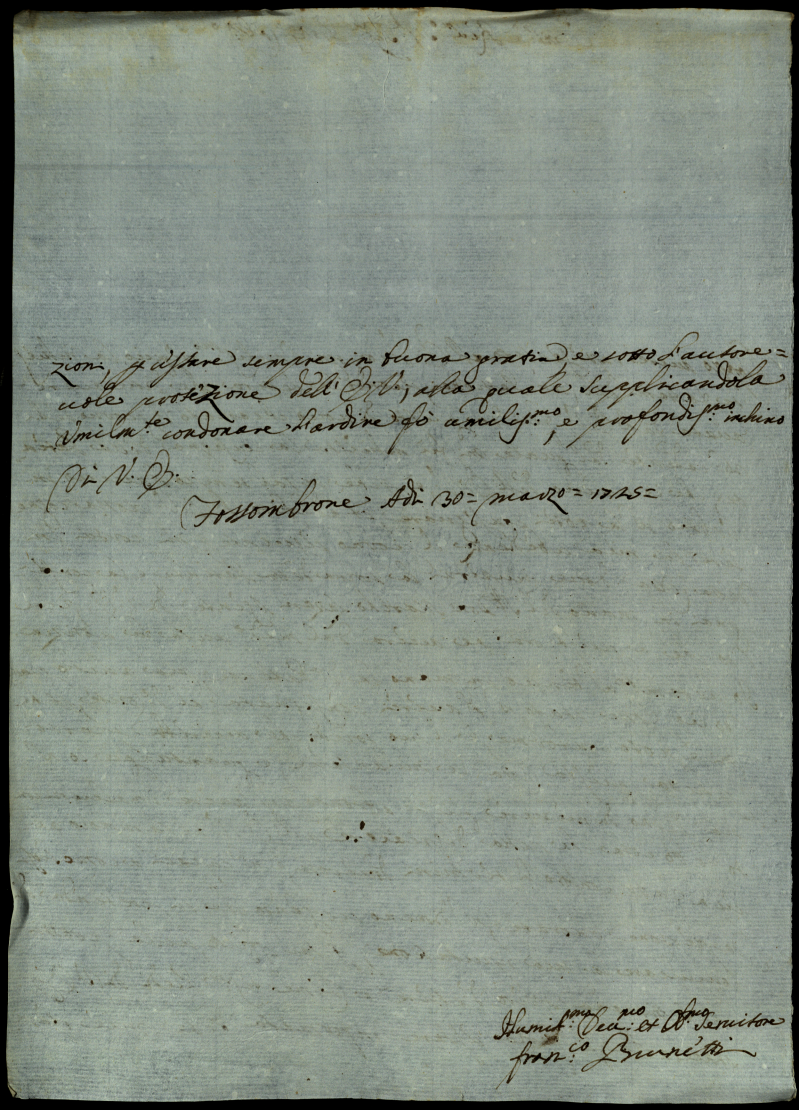 zioni, p essere sempre in buona gratia e sotto l'autore=
uole protezione dell' E: V:, alla quale supplicandola
Vmilm.te condonare l'ardire fò umilis.mo, e profondis.mo inchino
Di V. E.
Fossombrone Adi 30 = marzo = 1725 =
Humil.mo Deu.mo et Ob.mo Seruitore
fran.co Brunetti